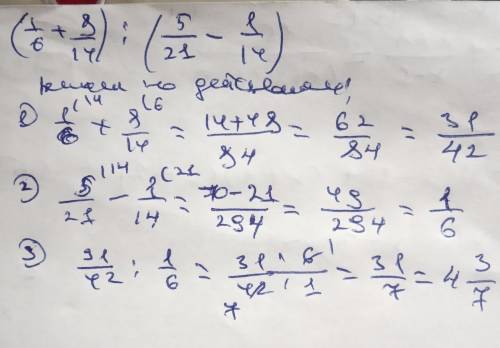 (1/6 + 8/14) : (5/21 - 1/14)
по действиям!
1) 1/6 (14 + 8/14 (6 = 14+48/84 = 62/84 = 31/42
2) 5/21 (14 - 1/14 (21 = 70-21/294 = 49/294 = 1/6
3) 31/42 : 1/6 = 31 · 6 1/42 7 · 1 = 31/7 = 4 3/7